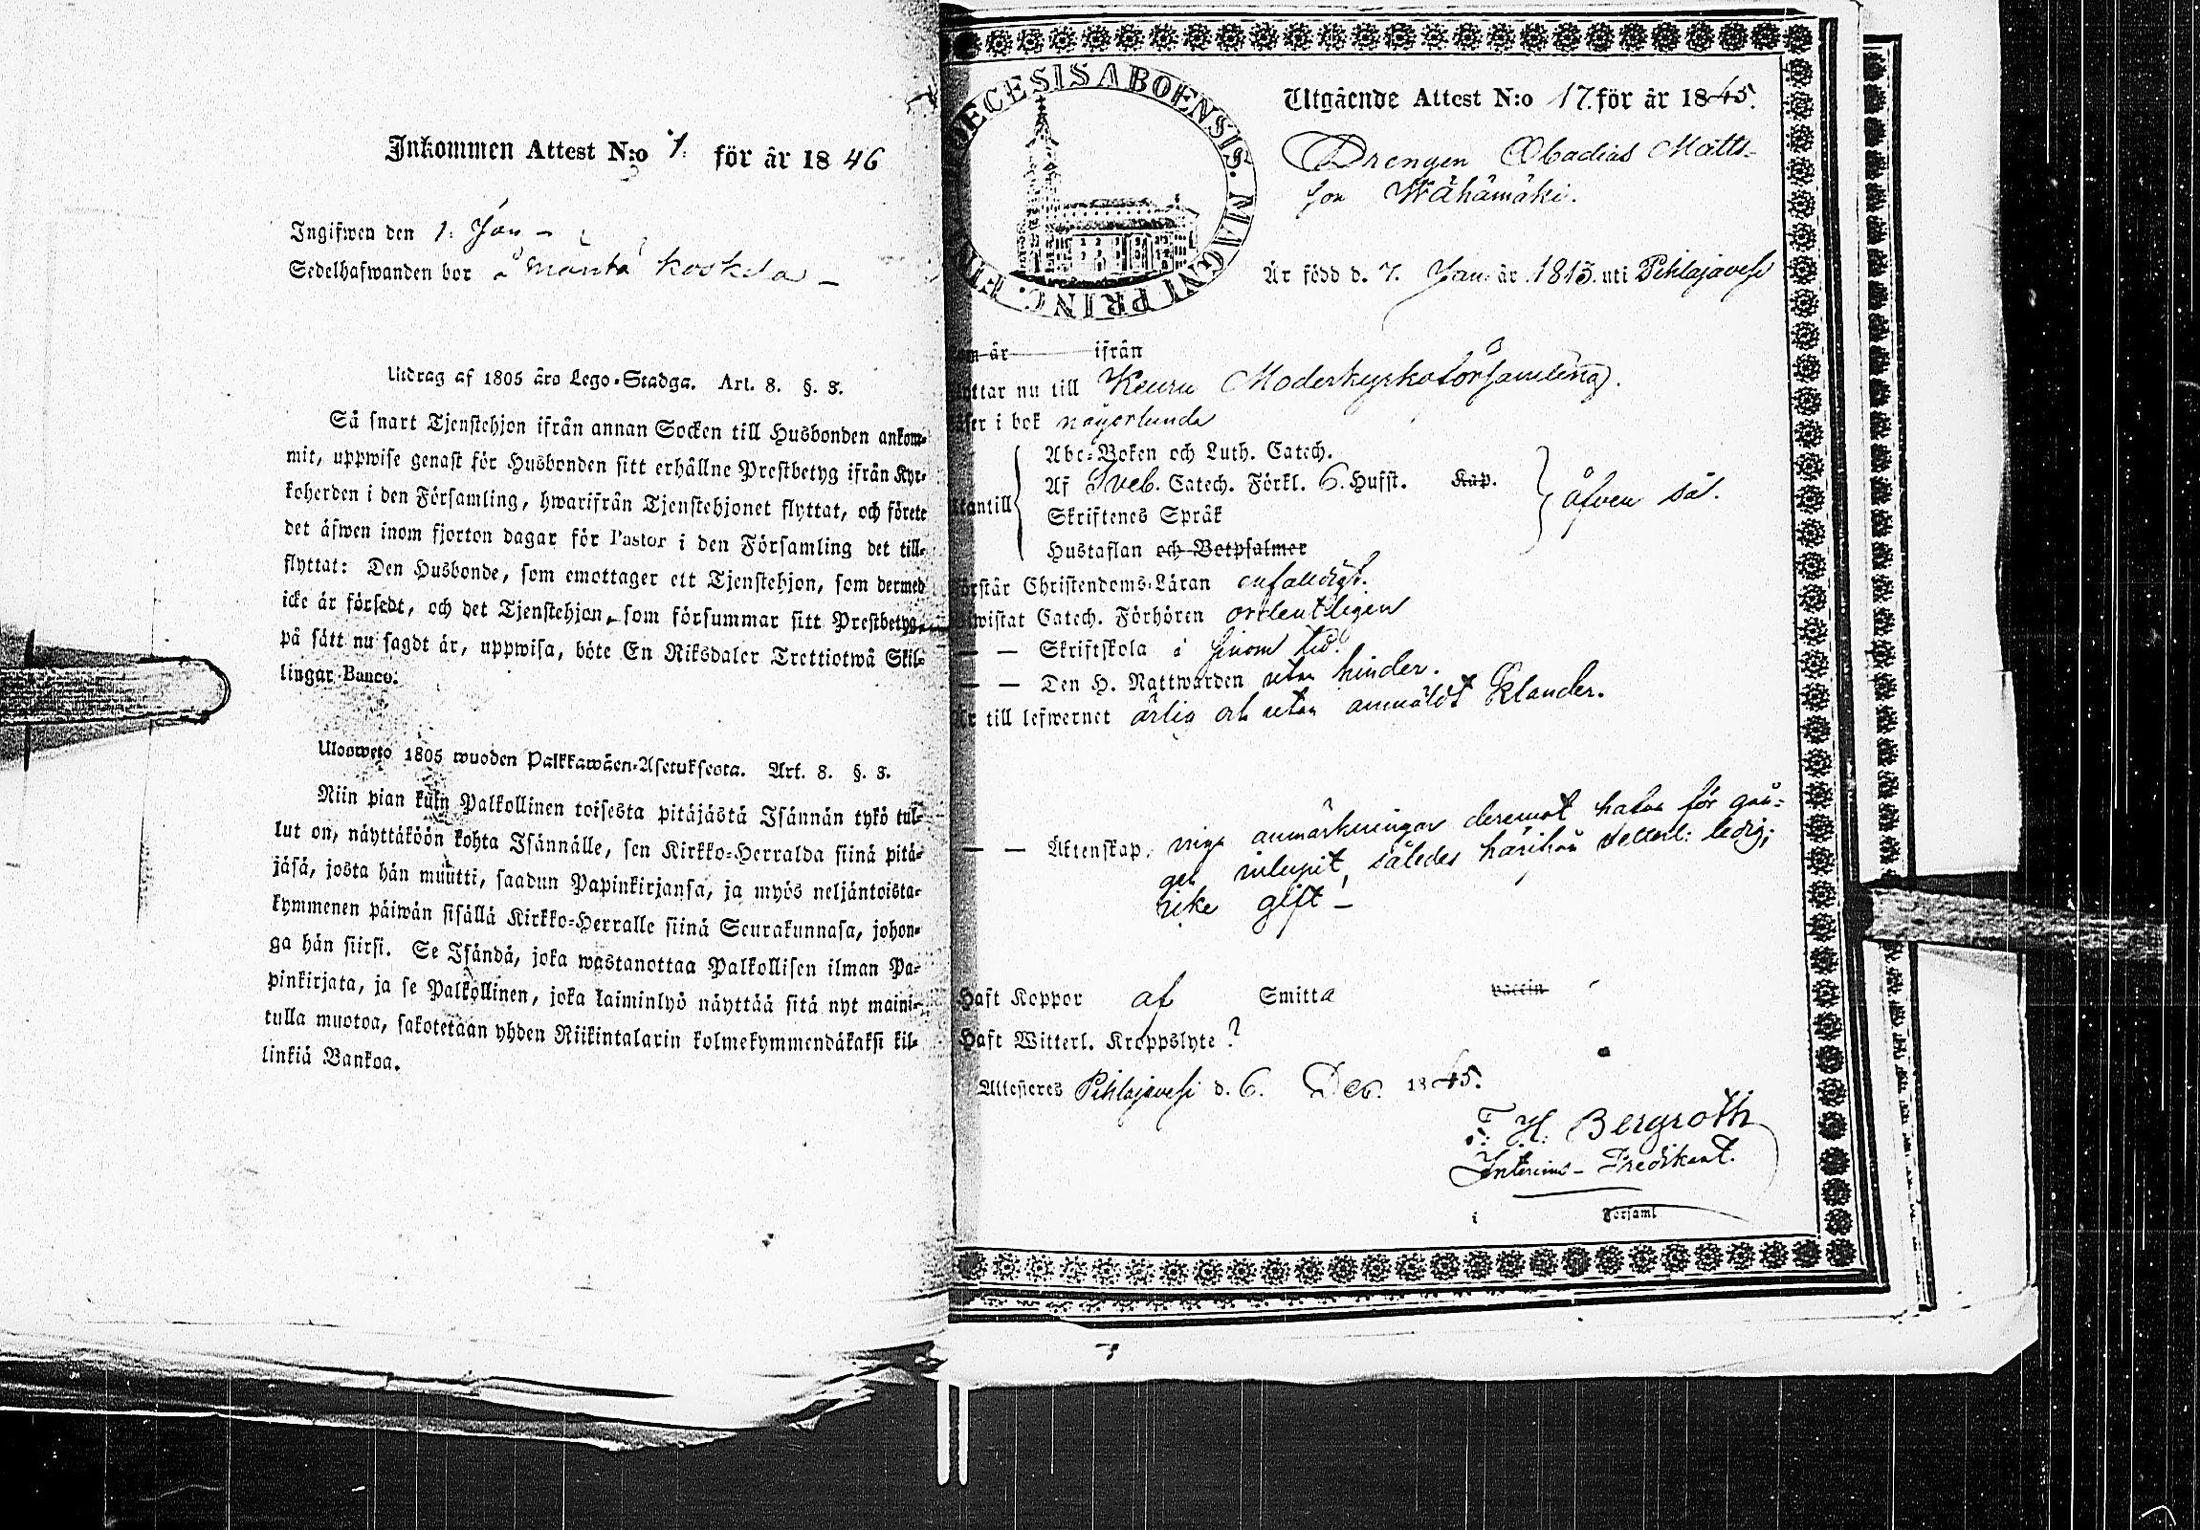 Inkommen Attest N:o 1. för år 1846
Ingifwen den 1. Jan –
Sedelhafwanden bor å Mänttä koskela –
Utdrag af 1805 års Lego-Stadga. Art. 8. §. 3.
Så snart Tjenstehjon ifrån annan Socken till Husbonden ankom-
mit, uppwise genast för Husbonden sitt erhållne Prestbetyg ifrån Kyr-
koherden i den Församling, hwarifrån Tjenstehjonet flyttat, och förete
det äfwen inom fjorton dagar för Pastor i den Församling det till-
flyttat: Den Husbonde, som emottager ett Tjenstehjon, som dermed
icke är försedt, och det Tjenstehjon, som försummar sitt Prestbetyg,
på sätt nu sagdt är, uppwisa, böte En Riksdaler Trettiotwå Skil-
lingar Banco.
Ulosweto 1805 wuoden Palkkawäen-Asetuksesta. Art. 8. §. 3.
Niin pian kuin Palkollinen toisesta pitäjästä Isännän tykö tul-
lut on, näyttäköön kohta Isännälle, sen Kirkko-Herralda siinä pitä-
jäsä, josta hän muutti, saadun Papinkirjansa, ja myös neljäntoista-
kymmenen päiwän sisällä Kirkko-Herralle siinä Seurakunnasa, johon-
ga hän siirsi. Se Isändä, joka wastanottaa Palkollisen ilman Pa-
pinkirjata, ja se Palkollinen, joka laiminlyö näyttää sitä nyt maini-
tulla muotoa, sakotetaan yhden Riikintalarin kolmekymmendäkaksi kil-
linkiä Bankoa.
ECESIS ABOENSIS. MAGNI PRINC.
Utgående Attest N:o 17. för år 1845.
Drengen Obadias Matts-
son Wähämäki.
Är född d. 7. Jan. år 1815. uti Pihlajavesi
om är ifrån
ttar nu till Keuru Moderkyrkoförsamling.
äser i bok någorlunda
Abc-Boken och Luth. Catech.
Af Sveb. Catech. Förkl. 6. Hufst. Kap.
tantill Skriftenes Språk
äfven så.
Hustaflan och Botpsalmer
örstår Christendoms-Läran enfaldigt.
wistat Catech. Förhören ordentligen
— — Skriftskola i sinom tid.
— — Den H. Nattwarden utan hinder.
Är till lefwernet ärlig och utan anmäldt klander.
— — Äktenskap, inga anmärkningar deremot hafva för gån-
gen inlupit, således härifrån vetterl: ledig;
icke gift –
Haft Koppor af Smitta vaccin
Haft Witterl. Kroppslyte ?
Attesteras Pihlajavesi d. 6. Dec. 1845.
F. H. Bergroth
Interims-Predikant.
i Församl